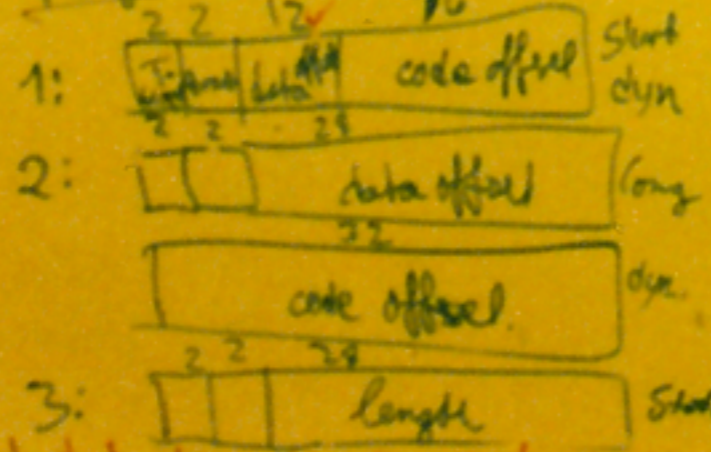 2 2 12
1: data code offset Short dyn
2 2 28
2: data offset Long
32
code offset dyn.
2 2 28
3: length